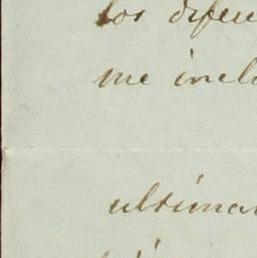 los difen
me incl
ultima